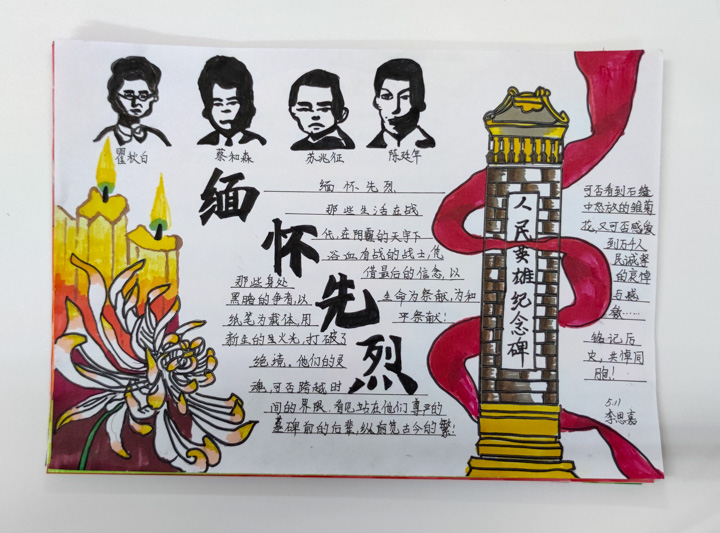 瞿秋白
蔡和森
苏兆征
陈延年
缅
怀
先
烈
缅怀先烈
那些生活在战
代,在阴霾的天宇下
浴血奋战的战士,凭
借最后的信念,以
生命为祭献,为和
平祭献!
那些身处
黑暗的争者,以
纸笔为载体,用
新生的星火光,打破了
绝境。他们的灵
魂,可否跨越时
间的界限,看见站在他们尊严的
墓碑前的后辈,纵观先古今的繁!
人民英雄纪念碑
可否看到石缝
中怒放的雏菊
花,又可否感爱
到万千人
民诚挚
的哀悼
与感
激……
铭记历
史,共悼同
胞!
5.11
李思嘉